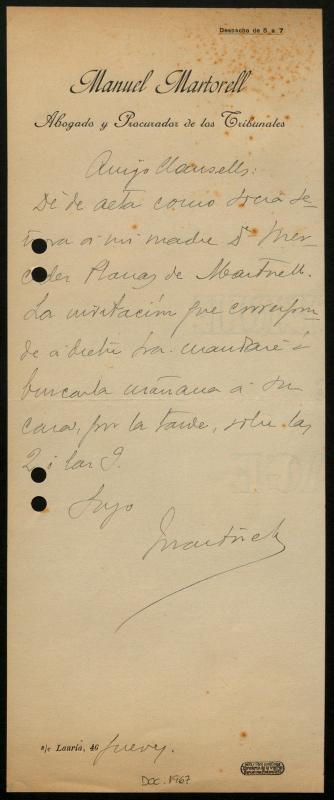 Despacho de 5 a 7
Manuel Martorell
Abogado y Procurador de los Tribunales
Amigo Mansells:
Dé de acta como socia se-
ñora a mi madre Dª Mer-
cedes Planas de Martorell.
La invitación que correspon-
de a dicha Sra. mandaré a
buscarla mañana a su
casa, por la tarde, sobre las
2 a las 9.
Suyo
Martorell
s/c Lauria, 46 Jueves.
DOC. 1967